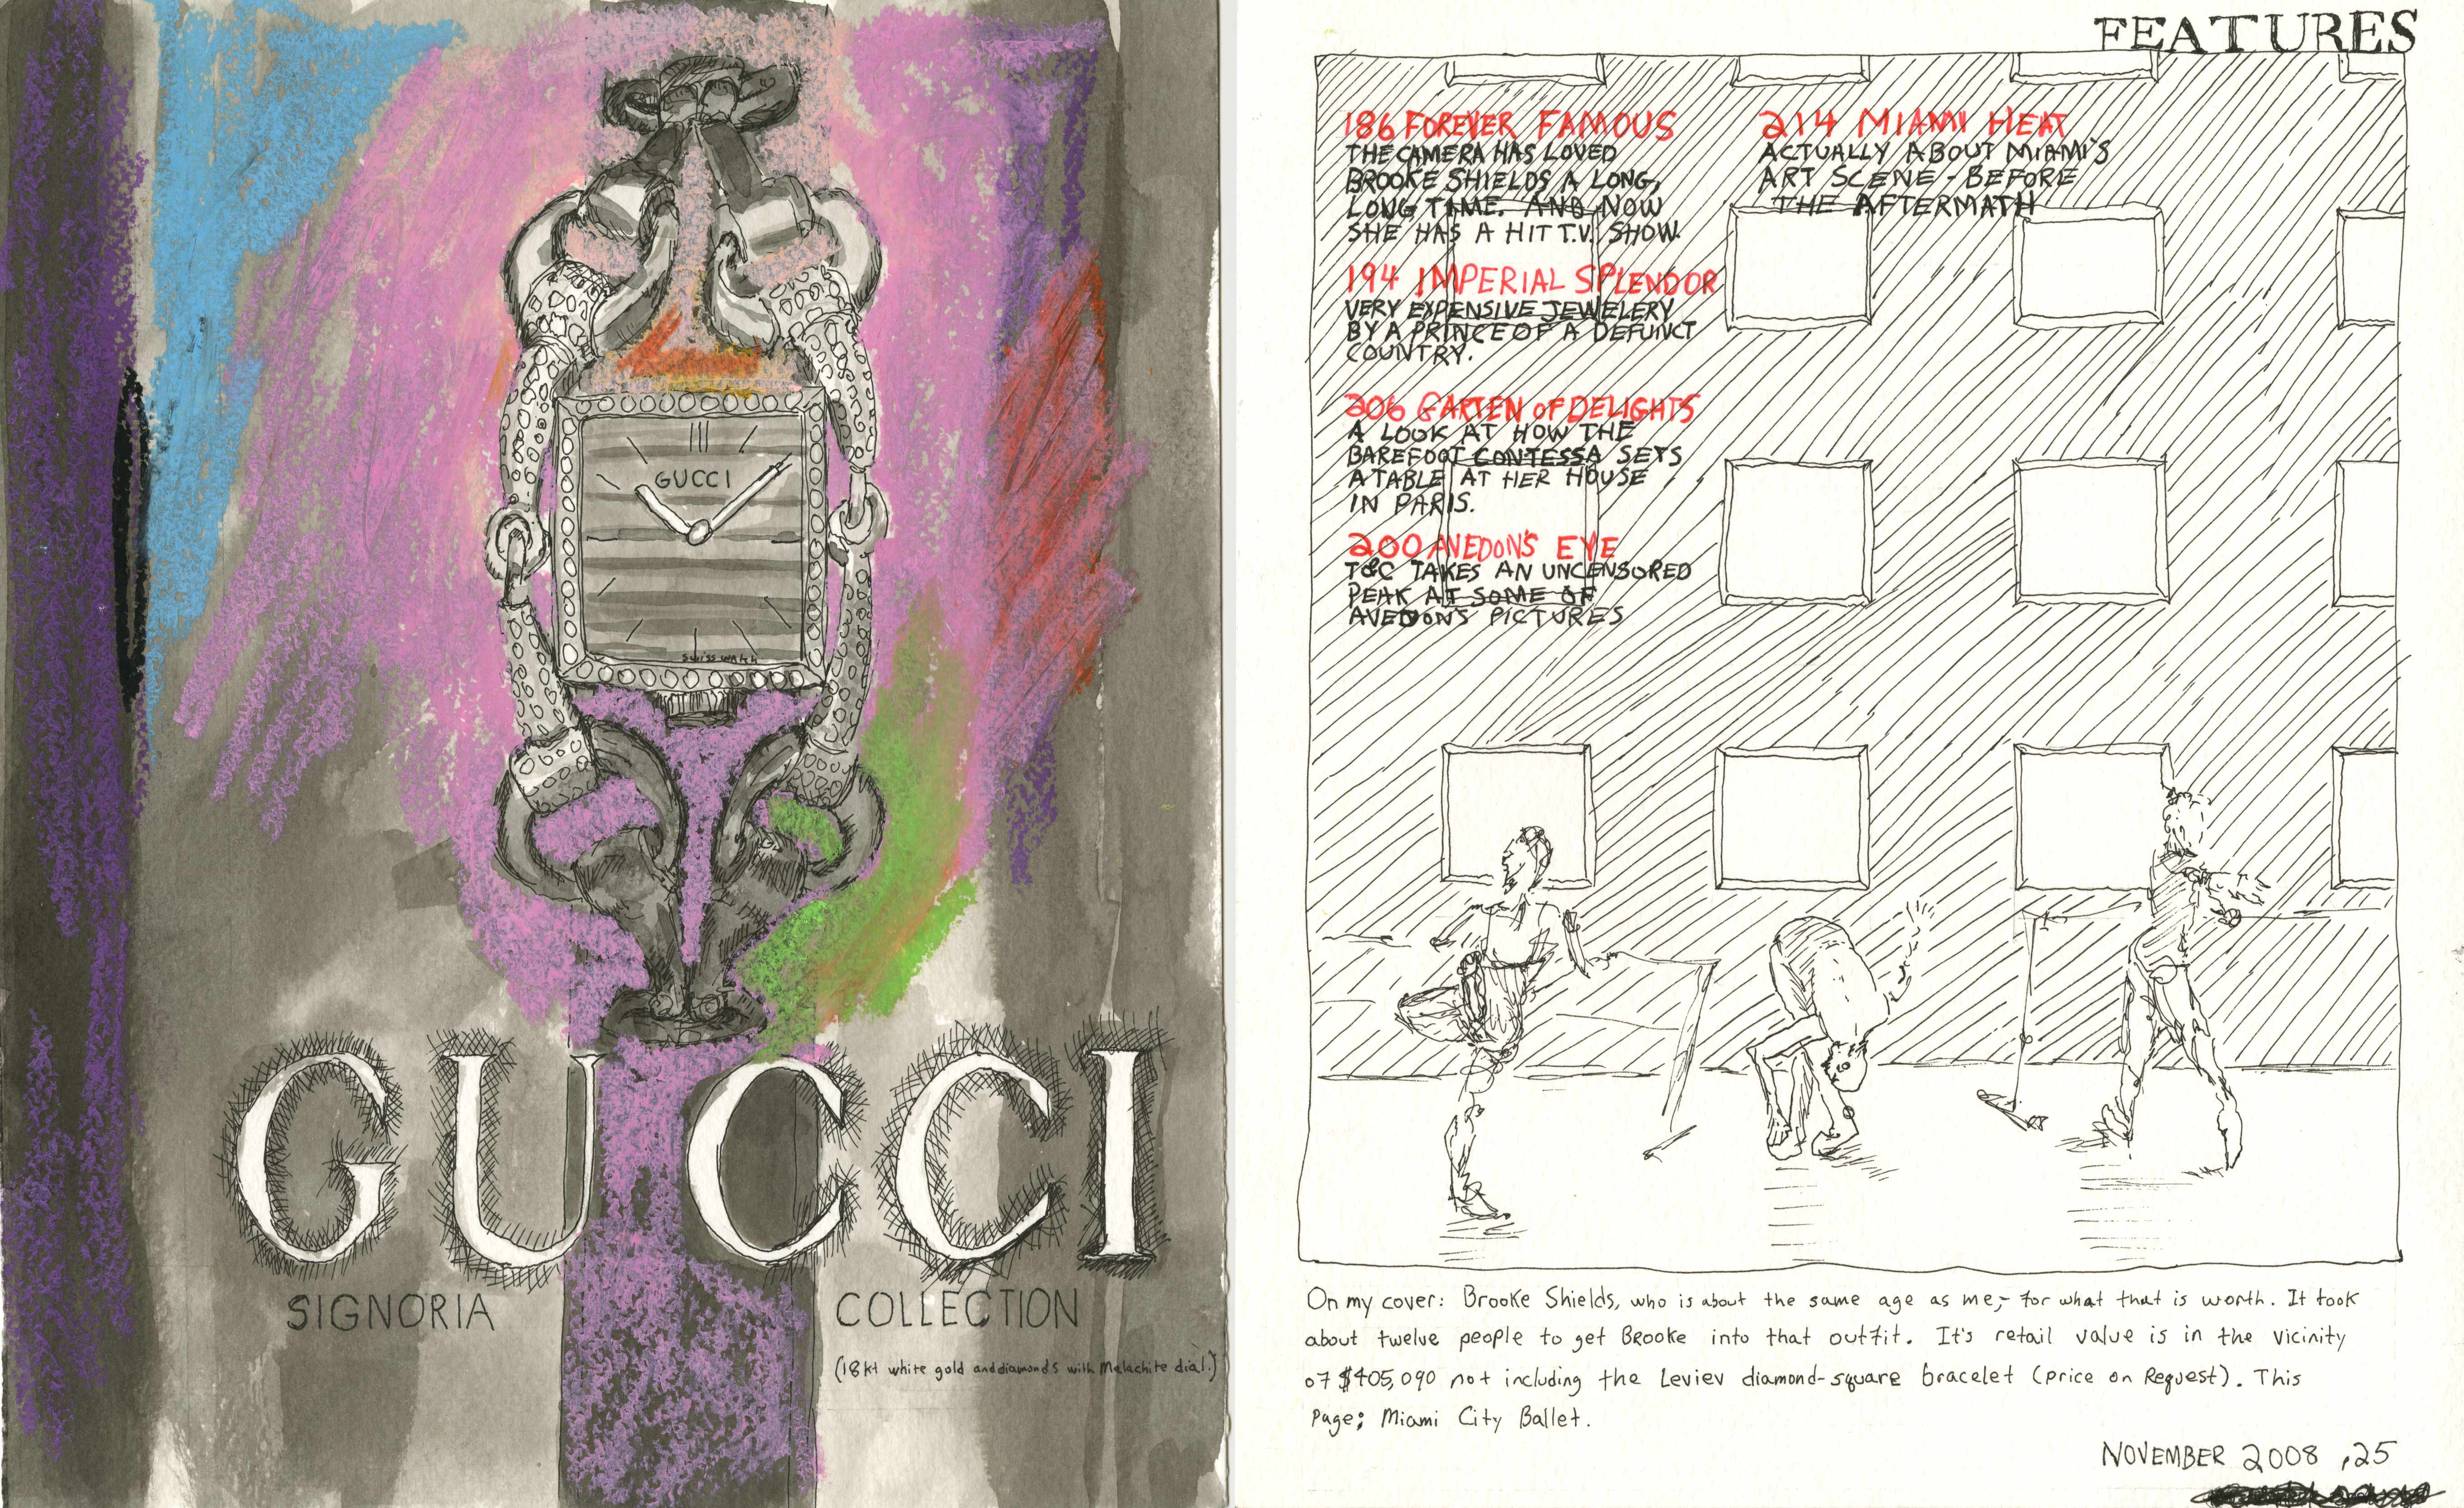 GUCCI
swiss watch
GUCCI
SIGNORIA COLLECTION
(18kt white gold and diamonds with Malachite dial.)
FEATURES
186 FOREVER FAMOUS
THE CAMERA HAS LOVED
BROOKE SHIELDS A LONG,
LONG TIME. AND NOW
SHE HAS A HIT T.V. SHOW.
194 IMPERIAL SPLENDOR
VERY EXPENSIVE JEWELERY
BY A PRINCE OF A DEFUNCT
COUNTRY.
206 GARTEN OF DELIGHTS
A LOOK AT HOW THE
BAREFOOT CONTESSA SETS
A TABLE AT HER HOUSE
IN PARIS.
200 AVEDON'S EYE
T&C TAKES AN UNCENSORED
PEAK AT SOME OF
AVEDON'S PICTURES
214 MIAMI HEAT
ACTUALLY ABOUT MIAMI'S
ART SCENE - BEFORE
THE AFTERMATH
On my cover: Brooke Shields, who is about the same age as me,- for what that is worth. It took
about twelve people to get Brooke into that outfit. It's retail value is in the vicinity
of $405,090 not including the Leviev diamond-square bracelet (price on Request). This
Page; Miami City Ballet.
NOVEMBER 2008 ,25